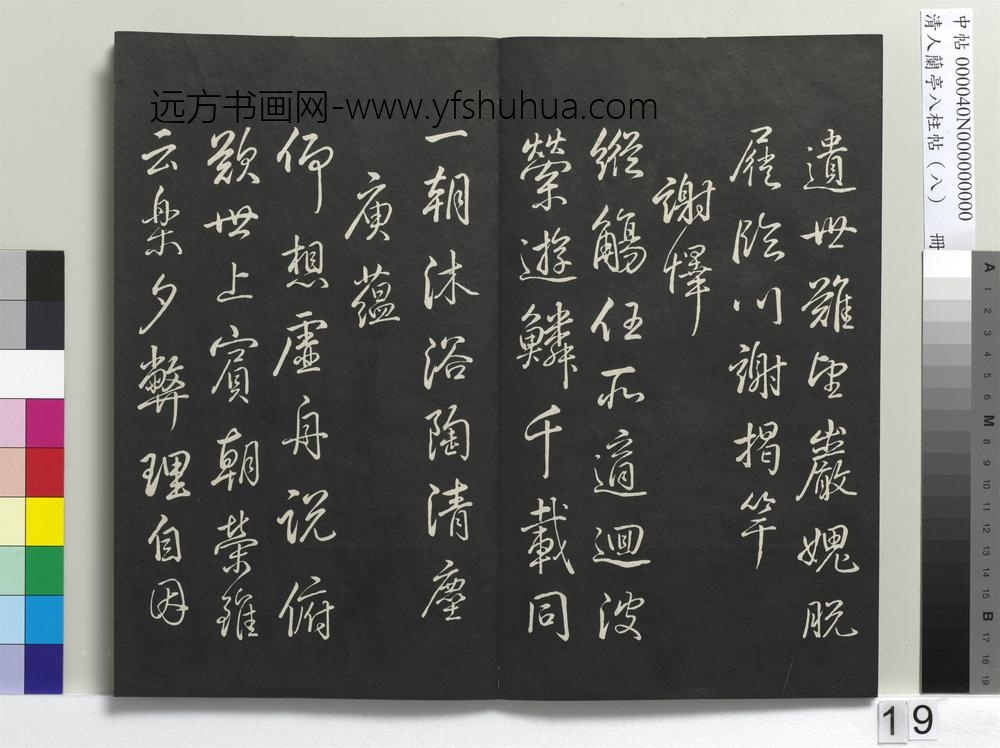 中帖 000040N000000000
清人蘭亭八柱帖(八) 冊
远方书画网-www.yfshuhua.com
遺世難望巖愧脱
屣臨川謝揭竿
謝懌
縱觴任所適迴波
縈遊鱗千載同
一朝沐浴陶清塵
庾蘊
仰想虛舟説俯
歎世上賓朝榮雖
云樂夕弊理自因
A 1 2 3 4 5 6 M 8 9 10 11 12 13 14 15 B 17 18 19
19